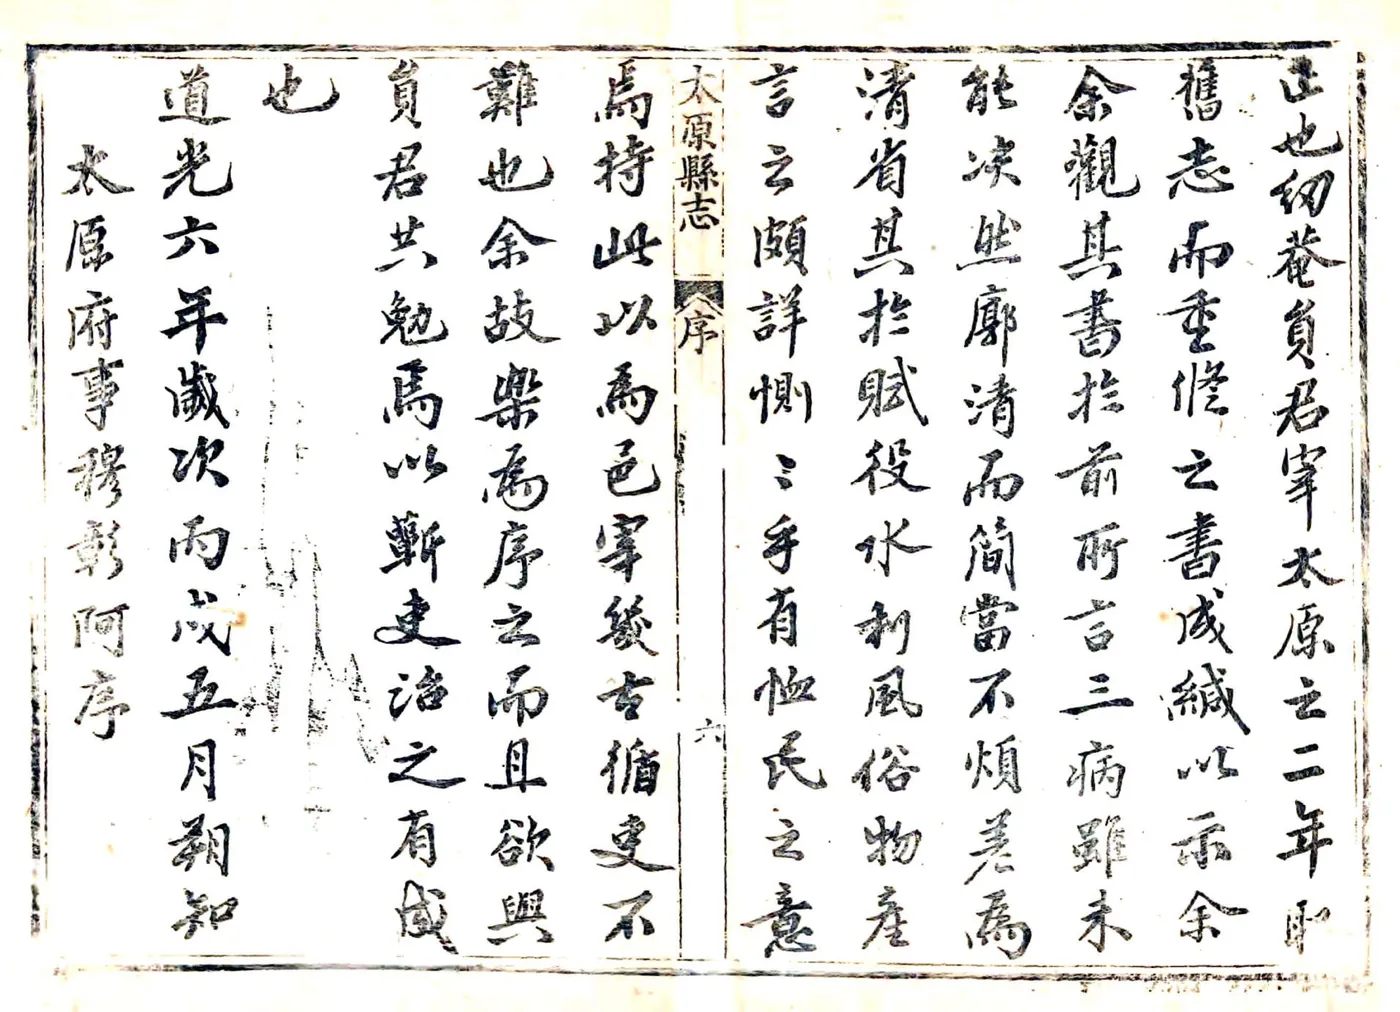 正也紉菴員君宰太原之二年取
舊志而重修之書成緘以示余
余觀其書於前所言三病雖未
能决然廓清而簡當不煩差為
清省其於賦役水利風俗物產
言之頗詳惻〻乎有恤民之意
太原縣志
序
六
焉持此以為邑宰幾古循吏不
難也余故樂為序之而且欲與
員君共勉焉以蘄吏治之有成
也
道光六年歲次丙戌五月朔知
太原府事穆彰阿序